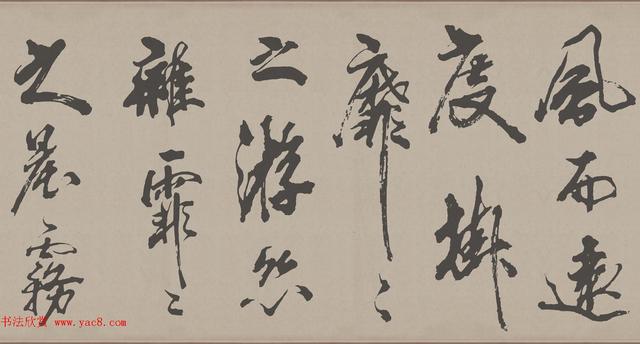 風而遠
度掛
靡〻
之游絲
雜霏〻
之晨霧
书法欣赏 www.yac8.com